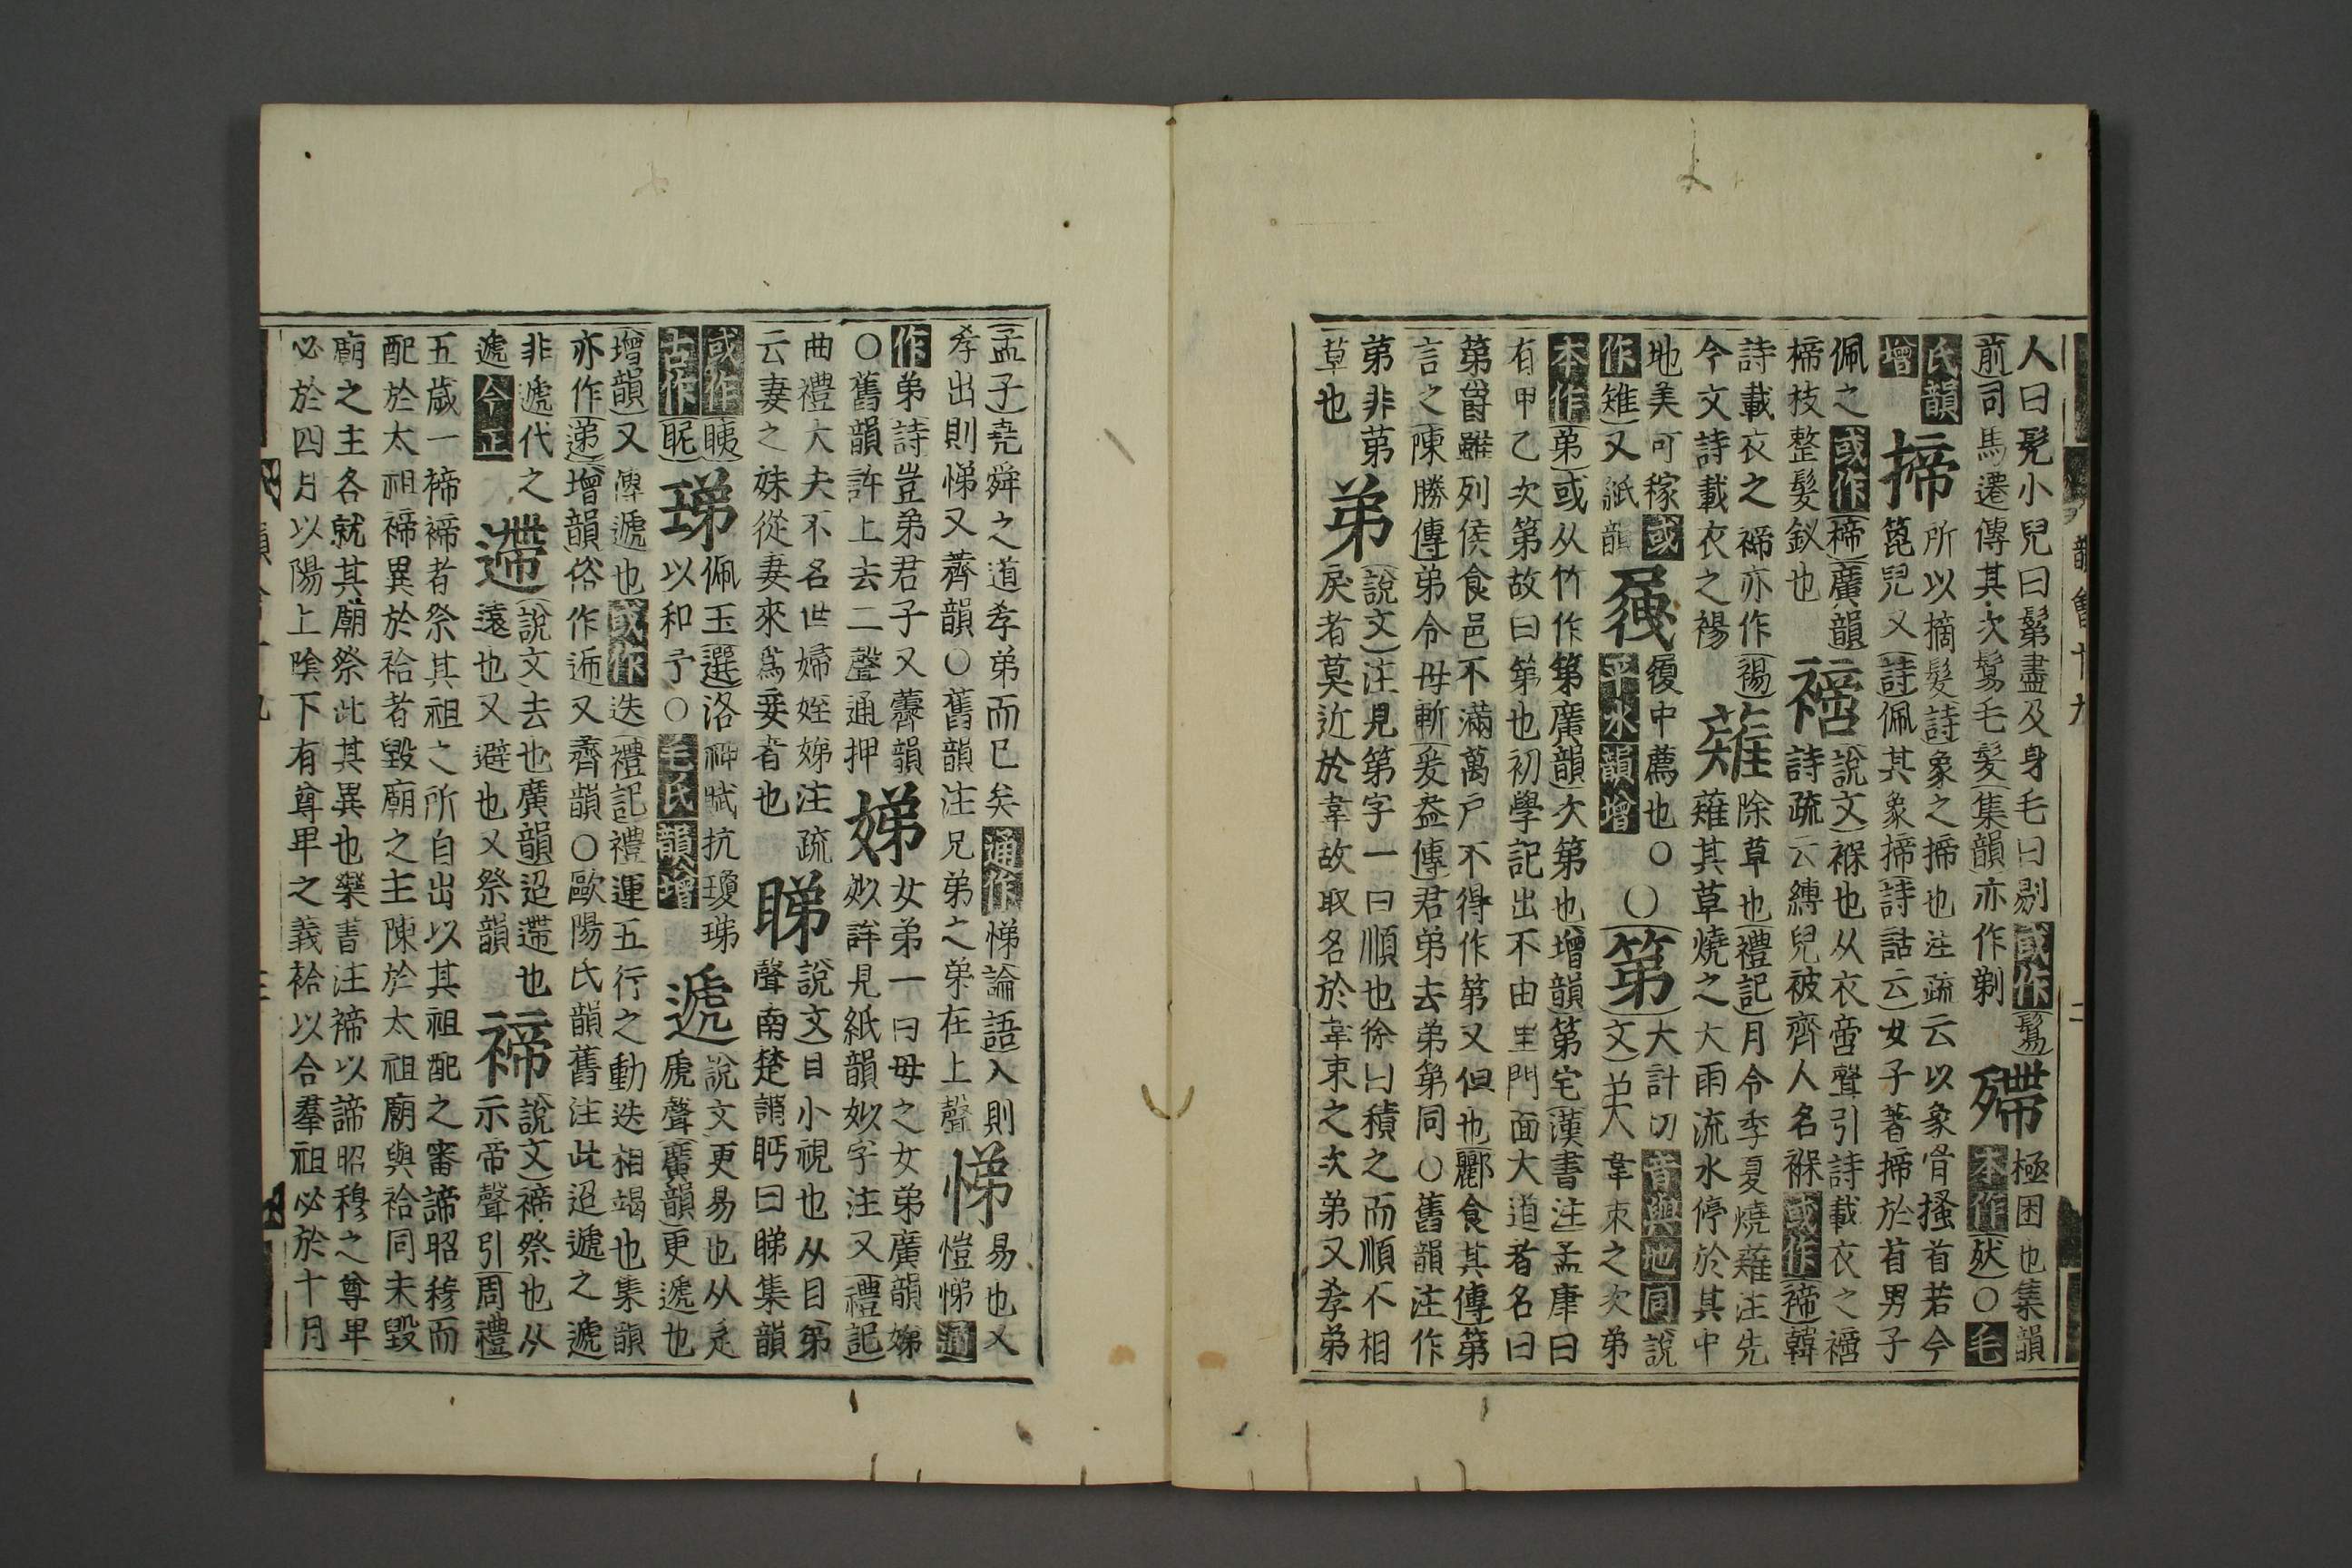 韻會十九
人曰髡小兒曰鬀盡及身毛曰剔或作鬄
前司馬遷傳其次鬄毛髮集韻亦作剃 殢 極困也集韻本作㱴○毛
氏韻增 揥 所以摘髮詩象之揥也注疏云以象骨搔首若今
篦兒又詩佩其象揥詩詁云女子著揥於首男子
佩之或作楴廣韻楴枝整髮釵也 禘 說文褓也从衣啻聲引詩載衣之禘
詩疏云縛兒被齊人名褓或作褅韓
詩載衣之褅亦作裼今文詩載衣之裼 薙 除草也禮記月令季夏燒薙注先
薙其草燒之大雨流水停於其中
地美可稼或作雉又紙韻 屟 履中薦也○平水韻增
○第 大計切音與地同說文弟大韋束之次弟
本作弟或从竹作第廣韻次第也增韻第宅漢書注孟康曰
有甲乙次第故曰第也初學記出不由里門面大道者名曰
第爵雖列侯食邑不滿萬戶不得作第又但也酈食其傳第
言之陳勝傳弟令毋斬爰盎傳君弟去弟第同○舊韻注作
苐非苐草也
弟 說文注見第字一曰順也徐曰積之而順不相
戾者莫近於韋故取名於韋束之次弟又孝弟
孟子堯舜之道孝弟而已矣通作悌論語入則
孝出則悌又薺韻○舊韻注兄弟之弟在上聲 悌 易也又愷悌通
作弟詩豈弟君子又薺韻○舊韻許上去二聲通押
娣 女弟一曰母之女弟廣韻娣
姒詳見紙韻姒字注又禮記
曲禮大夫不名世婦姪娣注疏云妻之妹從妻來爲妾者也
睇 說文目小視也从目弟聲南楚謂眄曰睇集韻
或作䏲古作眤 珶 佩玉選洛神賦抗瓊珶以和予○毛氏韻增
遞 說文更易也从辵虒聲廣韻更遞也
增韻又傳遞也或作迭禮記禮運五行之動迭相竭也集韻
亦作递增韻俗作逓又薺韻○歐陽氏韻舊注此迢遞之遞
非遞代之遞今正 遰 說文去也廣韻迢遰也遠也又避也又祭韻
禘 說文禘祭也从示帝聲引周禮
五歲一禘禘者祭其祖之所自出以其祖配之審諦昭穆而
配於太祖禘異於祫者毀廟之主陳於太祖廟與祫同未毀
廟之主各就其廟祭此其異也欒書注禘以諦昭穆之尊卑
必於四月以陽上陰下有尊卑之義祫以合羣祖必於十月